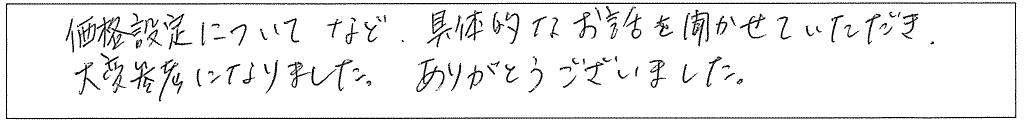 価格設定について など、具体的なお話を聞かせていただき、
大変参考になりました。 ありがとうございました。